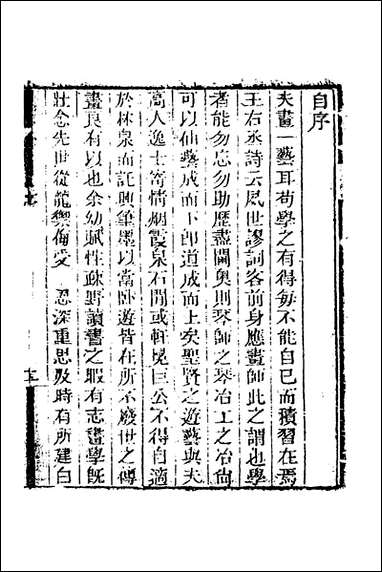 自序
夫畫一藝耳苟學之有得每不能自已而積習在焉
王右丞詩云夙世謬詞客前身應畫師此之謂也學
者能勿忘勿助歷盡閫奧則琴師之琴冶工之冶尙
可以仙藝成而下卽道成而上矣聖賢之遊藝與夫
高人逸士寄情烟霞泉石間或軒冕巨公不得自適
於林泉而託興筆墨以當臥遊皆在所不廢世之傳
畫良有以也余幼賦性疎野讀書之暇有志畫學旣
壯念先世從龍 叨受 恩深重思及時有所建白